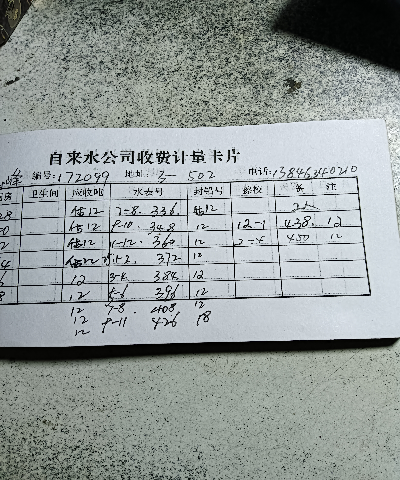 自来水公司收费计量卡片
峰 编号:172099 地址:3-502 电话:13846340210
房 卫生间 应收吨 水表号 封铅号 验收 备 注
28 估12 7-8. 336 估12
0 估12 9-10. 348 12 12-1 438. 12
2 估12 11-12. 360 12 2-4 450 12
4 估12 1-2. 372 12
12 3-4. 384 12
8 12 5-6 396 12
12 7-8. 408 12
12 9-11 426 18
12